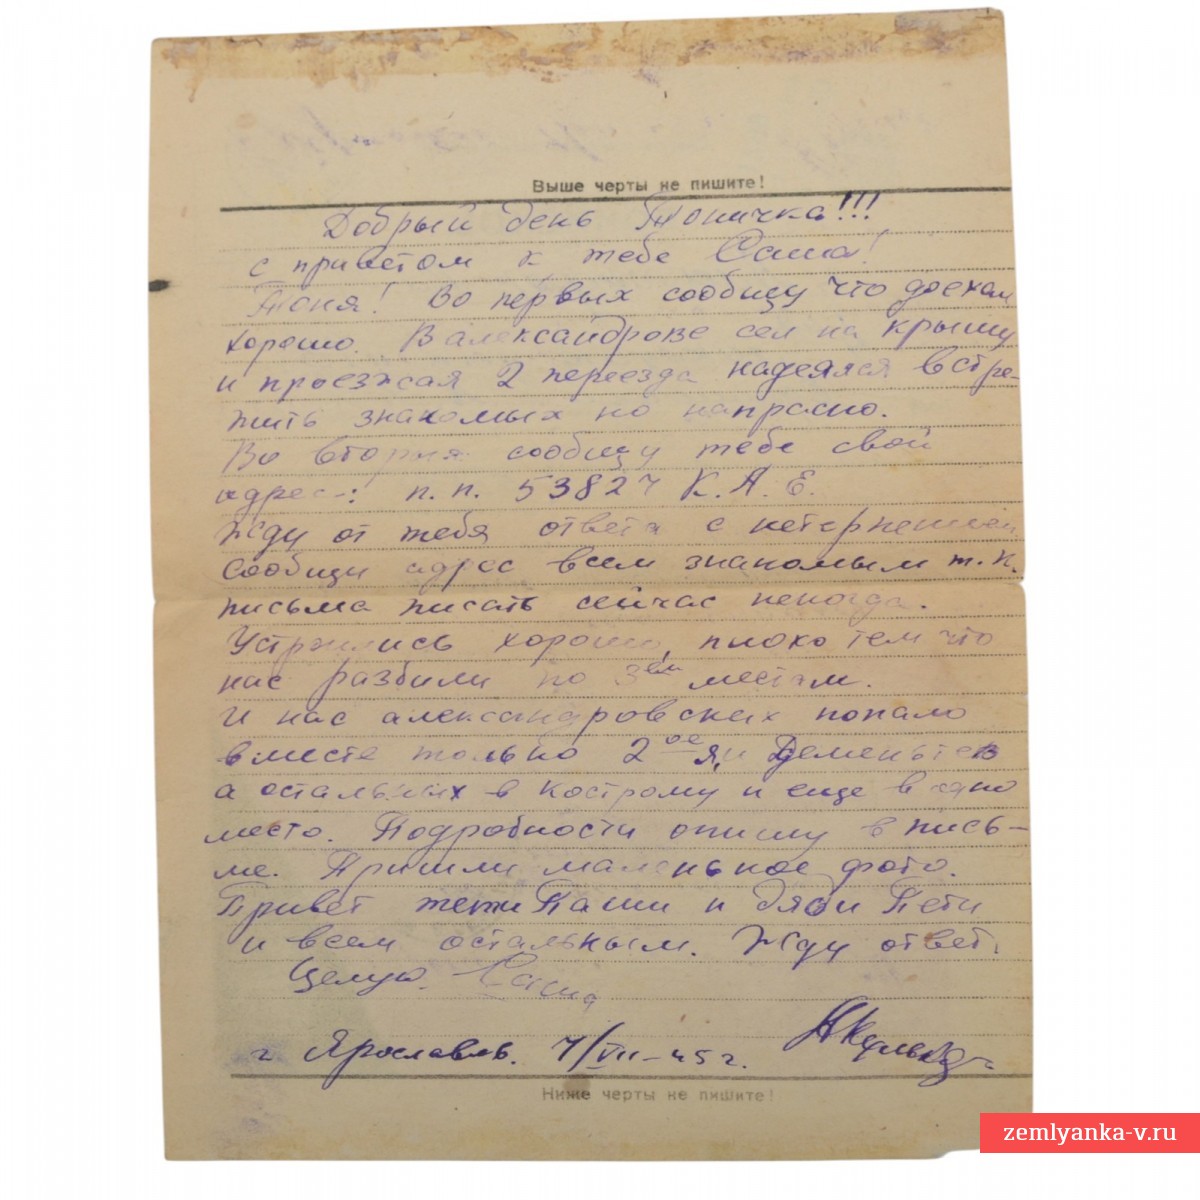 Выше черты не пишите!
Добрый день Тоничка!!!
с приветом к тебе Саша!
Тоня! Во первых сообщу что доехал
хорошо. В Александрове сел на крышу
и проезжая 2 переезда надеялся встре-
тить знакомых но напрасно.
Во вторых сообщу тебе свой
адрес-: п.п. 53827 К.А.Е.
Жду от тебя ответа с нетерпением
сообщи адрес всем знакомым т.к.
письма писать сейчас некогда.
Устроились хорошо, плохо тем что
нас разбили по 3ем местам.
И нас александровских попало
вместе только 2ое я, и Дементьев
а остальных в Кострому и еще в одно
место. Подробности опишу в пись-
ме. Пришли маленькое фото.
Привет тети Паши и дяди Пети
и всем остальным. Жду ответ.
Целую. Саша
г Ярославль. 7/VII-45г.
Ниже черты не пишите!
zemlyanka-v.ru